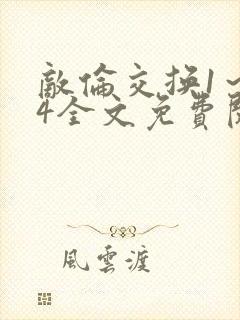 敵倫交換1~
4全文免費閱
風雲渡